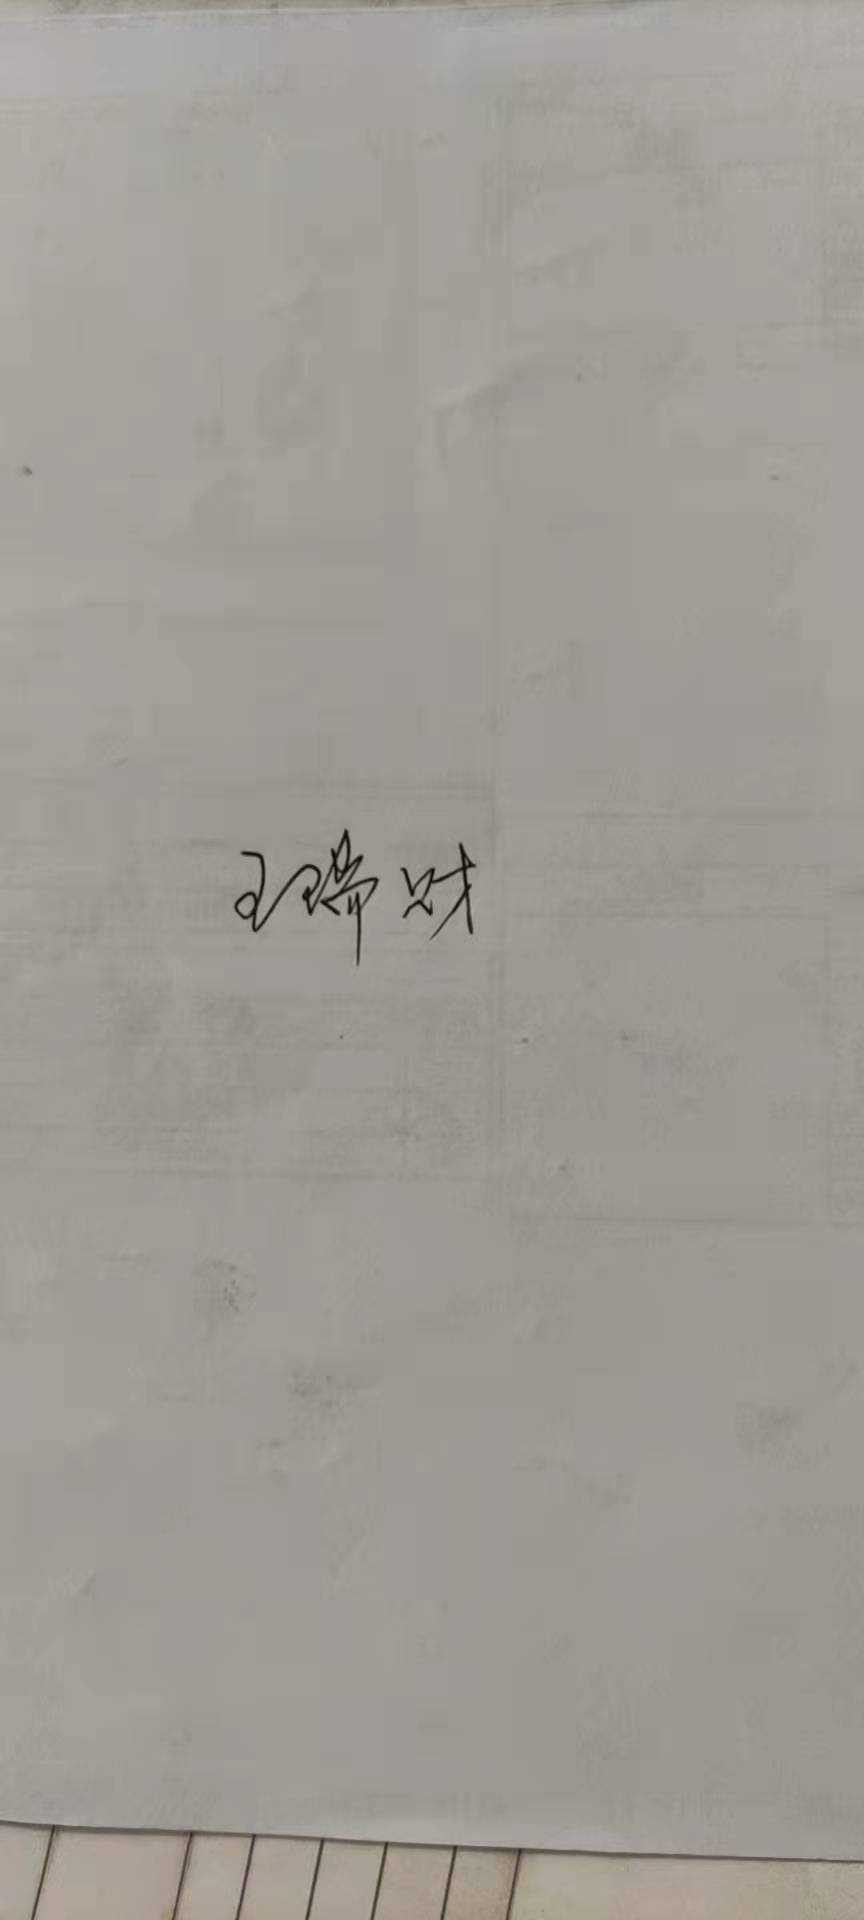 王瑞财